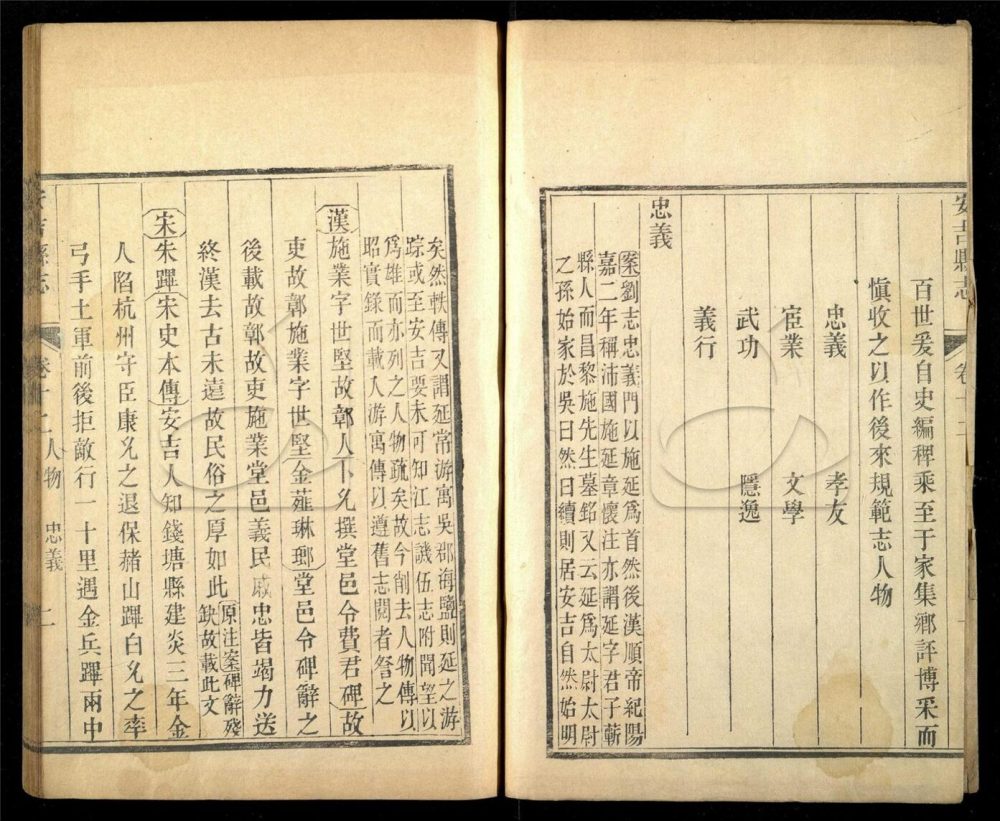 安吉縣志 卷十二
百世爰自史編稗乘至于家集鄉評博采而
愼收之以作後來規範志人物
忠義 孝友
宦業 文學
武功 隱逸
義行
忠義
案劉志忠義門以施延爲首然後漢順帝紀陽
嘉二年稱沛國施延章懷注亦謂延字君子蘄
縣人而昌黎施先生墓銘又云延爲太尉太尉
之孫始家於吳曰然曰續則居安吉自然始明
矣然軼傳又謂延常游寓吳郡海鹽則延之游
踪或至安吉要未可知江志譏伍志附聞望以
爲雄而亦列之人物疏矣故今削去人物傳以
昭實錄而載人游寓傳以遵舊志閱者詧之
漢施業字世堅故鄣人卞允撰堂邑令費君碑故
吏故鄣施業字世堅金薤琳瑯堂邑令碑辭之
後載故鄣故吏施業堂邑義民戚忠皆竭力送
終漢去古未遠故民俗之厚如此原注案碑辭殘
缺故載此文
宋朱蹕宋史本傳安吉人知錢塘縣建炎三年金
人陷杭州守臣康允之退保赭山蹕白允之率
弓手土軍前後拒敵行一十里遇金兵蹕兩中
安吉縣志 卷十二 人物 忠義 二